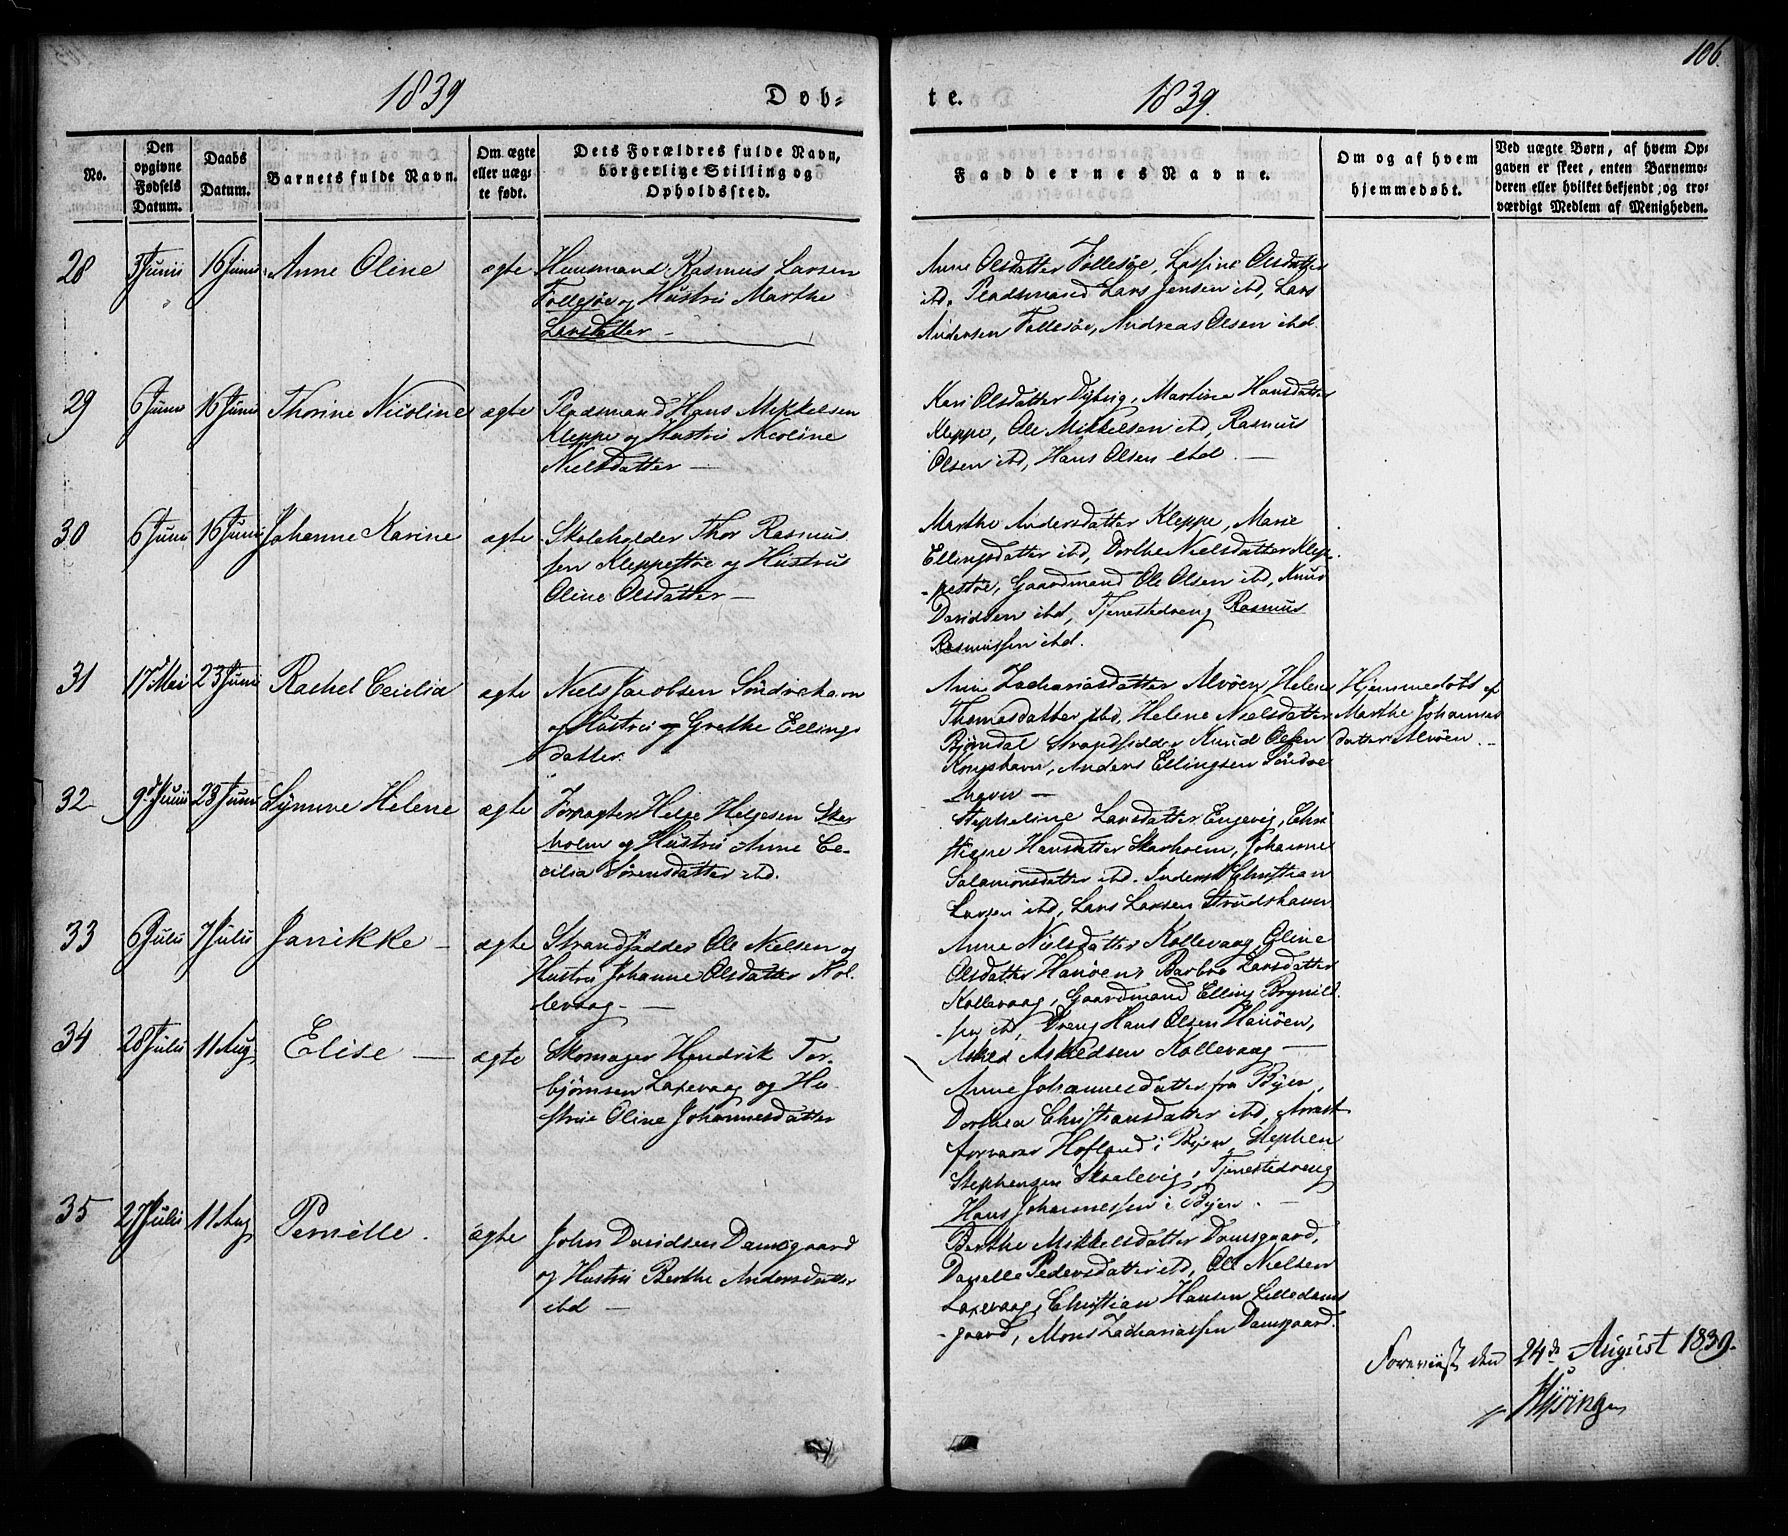 106.
1839
Døb-
te.
1839.
No.
Den opgivne Fødsels Datum.
Daabs Datum.
Barnets fulde Navn.
Om ægte eller uæg-te født.
Dets Forældres fulde Navn, borgerlige Stilling og Opholdssted.
Faddernes Navne.
Om og af hvem hjemmedøbt.
Ved uægte Børn, af hvem Op-gaven er skeet, enten Barnemo-deren eller hvilket bekjendt og tro-værdigt Medlem af Menigheden.
28
3 Junii
16 Junii
Anne Oline
ægte
Huusmand Rasmus Larsen
Follesøe og Hustru Marthe
Larsdatter —
Anne Olsdatter Follesøe, Lassine Olsdatter
ibd, Pladsmand Lars Jensen ibd, Lars
Andersen Follesøe, Andreas Olsen ibd.
29
6 Juni
16 Juni
Thorine Nicoline
ægte
Pladsmand Hans Mikkelsen
Kleppe og Hustru Nicoline
Nielsdatter —
Kari Olsdatter Dybvig, Martine Hansdatter
Kleppe, Ole Mikkelsen ibd, Rasmus
Olsen ibd, Hans Olsen ibd. —
30
6 Juni
16 Juni
Johanne Karine
ægte
Skoleholder Thor Rasmus
sen Kleppestøe og Hustru
Oline Olsdatter —
Marthe Andersdatter Kleppe, Marie
Ellingsdatter ibd, Dorthe Nielsdatter Klep-
pestøe, Gaardmand Ole Olsen ibd, Knud
Davidsen ibd, Tjenestedreng Rasmus
Rasmussen ibd.
31
17 Mai
23 Juni
Rachel Cecilia
ægte
Niels Jacobsen Søndrehavn
og Hustru Grethe Ellings
datter.
Ane Zachariasdatter Alvøen, Helene
Thomasdatter ibd, Helene Nielsdatter
Bjørndal Strandsidder Knud Olsen
Kongshavn, Anders Ellingsen Søndre
havn —
Hjemmedøbt af
Marthe Johannes
datter Alvøen. —
32
9 Junii
23 Juni
Synneve Helene
ægte
Forpagter Helge Helgesen Skar
holm og Hustru Anne Ce-
cilia Sørensdatter ibd.
Stephaline Larsdatter Engevig, Chri
stiane Hansdatter Skarholm, Johanne
Salamonsdatter ibd. Christian
Larsen ibd, Lars Larsen Strudshavn
33
6 Juli
7 Juli
Janikke —
ægte
Strandsidder Ole Nielsen og
Hustru Johanne Olsdatter Kol-
levaag —
Anne Nielsdatter Kollevaag, Oline
Olsdatter Hanøen, Barbro Larsdatter
Kollevaag, Gaardmand Elling Brynild-
sen ibd, Dreng Hans Olsen Hanøen,
Askild Askildsen Kollevaag —
34
28 Juli
11 Aug
Elise —
ægte
Skomager Hendrik Tor-
bjørnsen Laxevaag og Hu-
strue Oline Johannesdatter
Anne Johannesdatter fra Byen,
Dorthea Christiansdatter ibd, Arrest
forvarer Hofland i Byen, Stephen
Stephensen Skaalevig, Tjenestedreng
Hans Johannessen i Byen. —
35
27 Juli
11 Aug
Pernille.
ægte
John Davidsen Damsgaard
og Hustru Berthe Andersdatter
ibd —
Berthe Mikkelsdatter Damsgaard,
Danelle Pedersdatter ibd, Ole Nielsen
Laxevaag, Christian Hansen Lilledams
-gaard, Mons Zachariassen Damsgaard.
Foreviist den 24de August 1839.